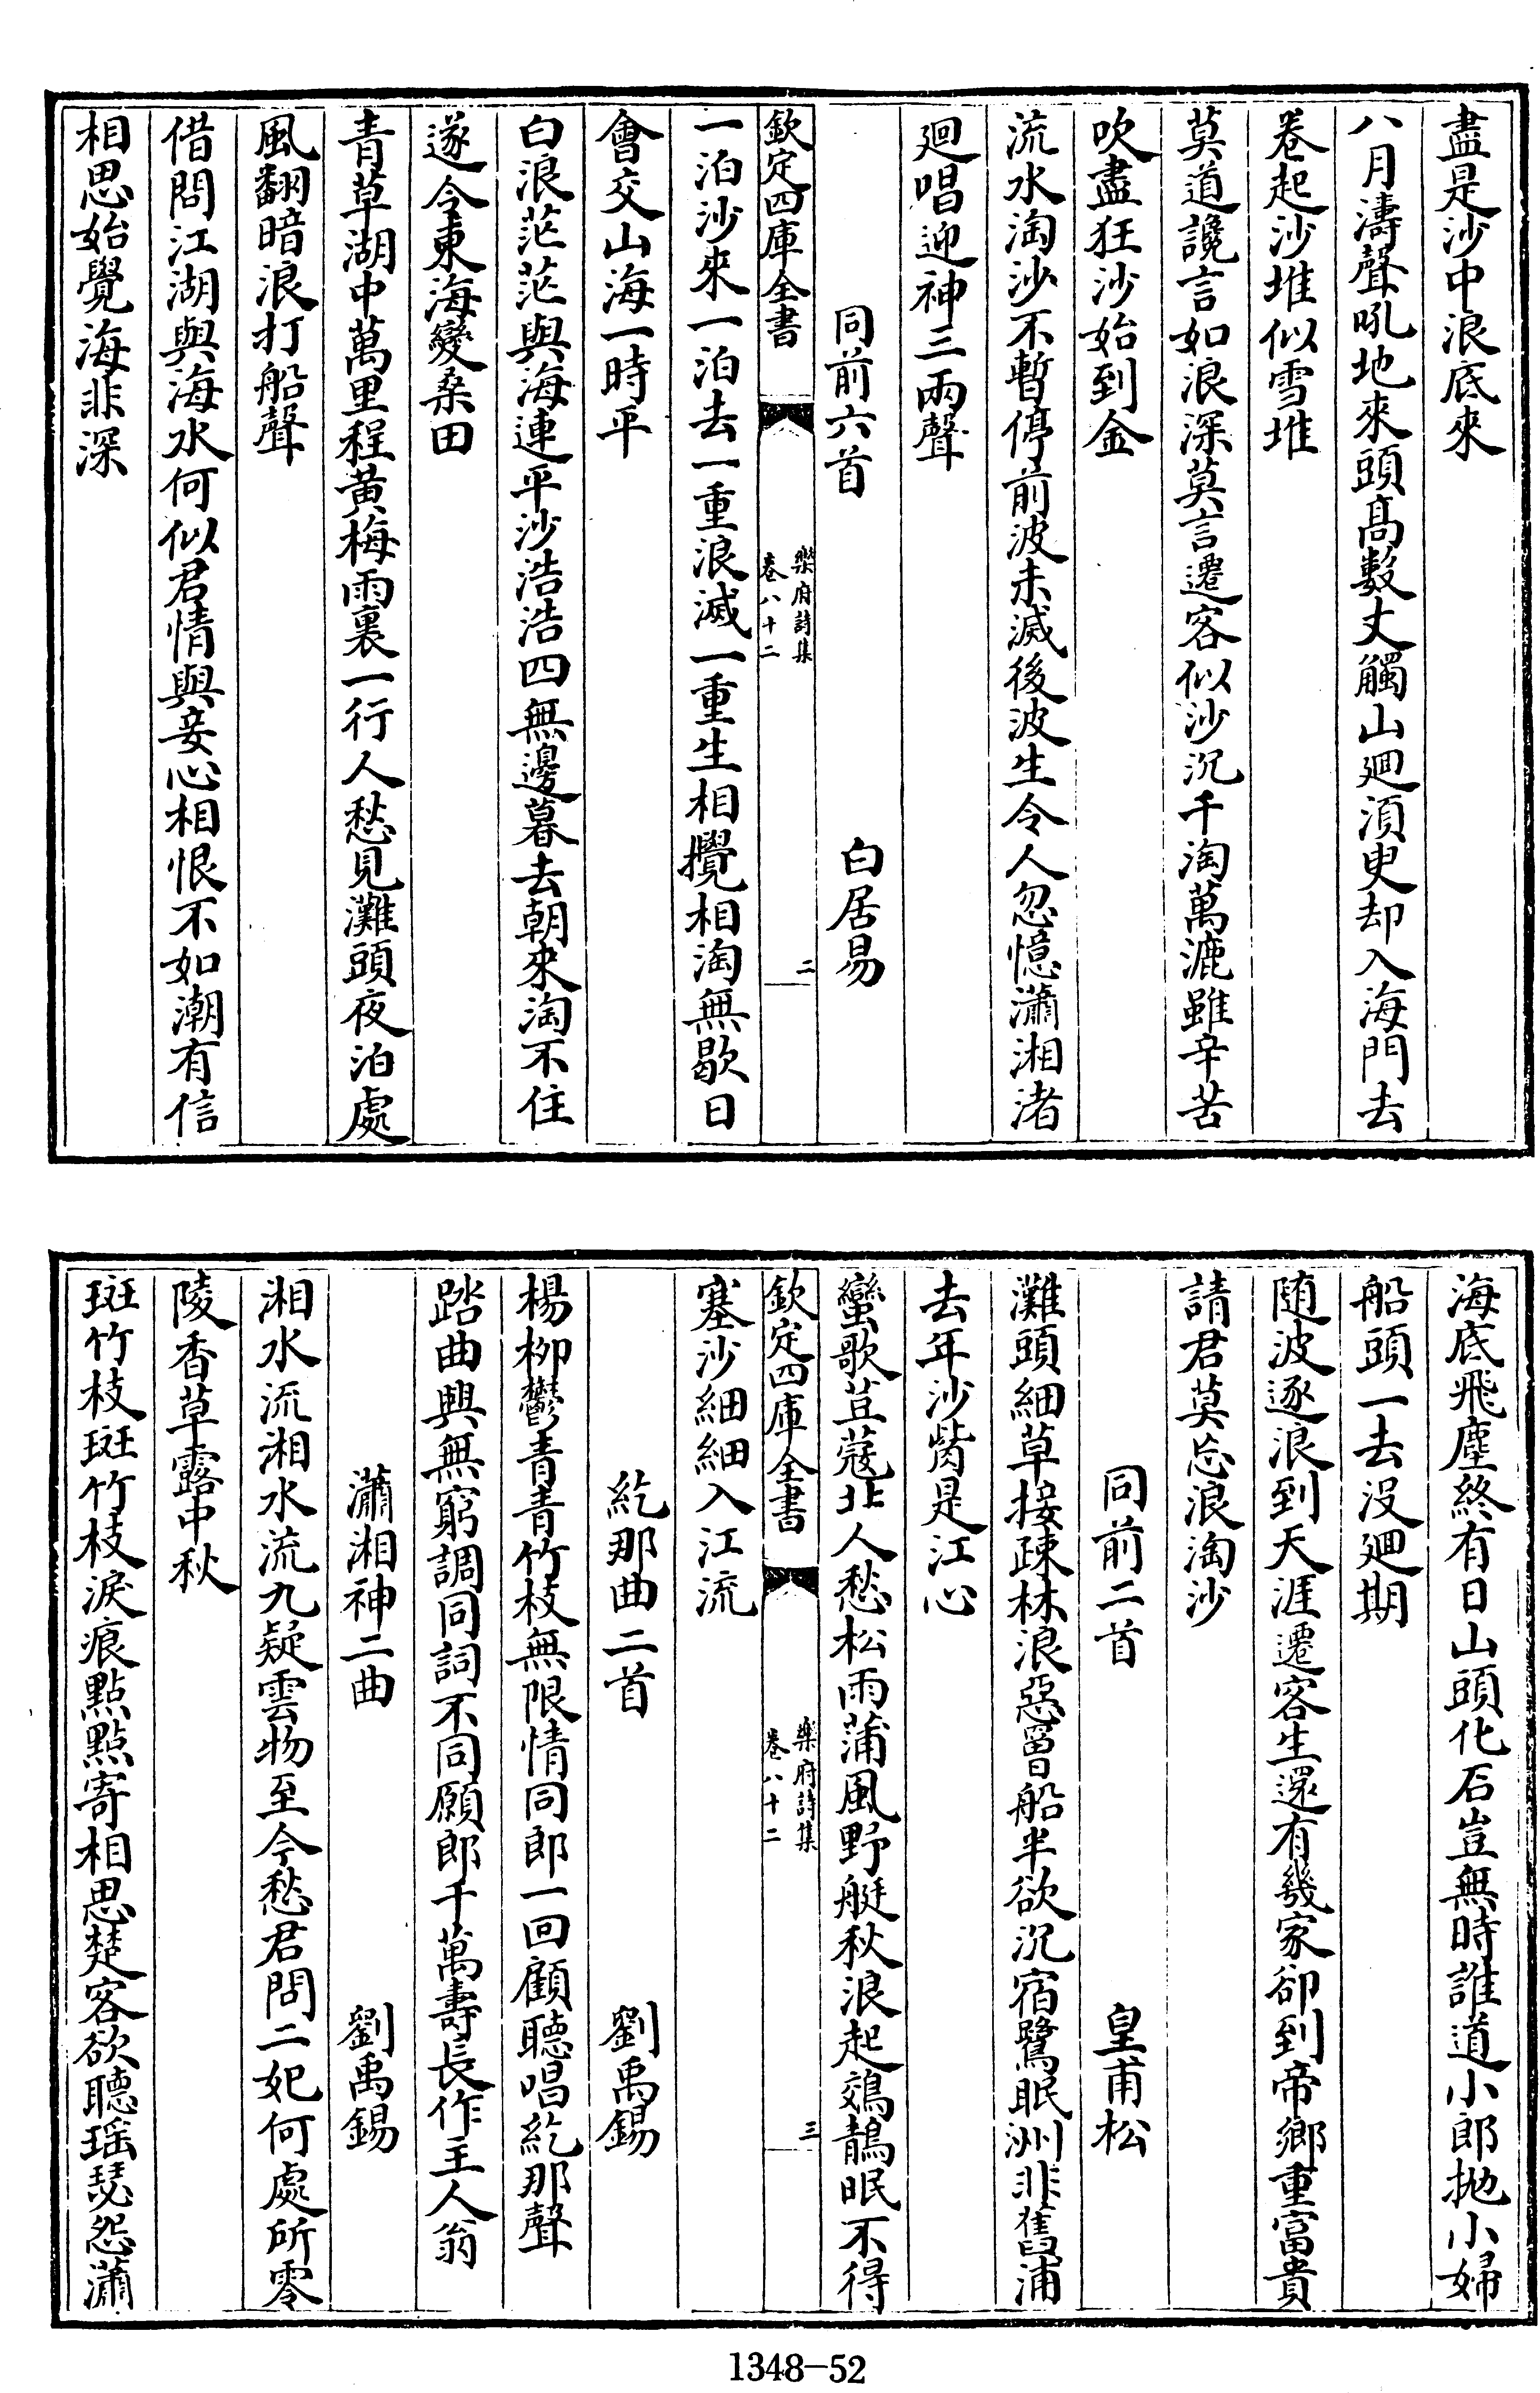 盡是沙中浪底來
八月濤聲吼地來頭髙數丈觸山廻湏臾却入海門去
卷起沙堆似雪堆
莫道讒言如浪深莫言遷客似沙沉千淘萬漉雖辛苦
吹盡狂沙始到金
流水淘沙不暫停前波未滅後波生令人忽憶瀟湘渚
廻唱迎神三兩聲
同前六首 白居易
欽定四庫全書 樂府詩集 卷八十二 二
一泊沙來一泊去一重浪滅一重生相攪相淘無歇日
會交山海一時平
白浪茫茫與海連平沙浩浩四無邊暮去朝來淘不住
遂令東海變桑田
青草湖中萬里程黄梅雨裏一行人愁見灘頭夜泊處
風翻暗浪打船聲
借問江湖與海水何似君情與妾心相恨不如潮有信
相思始覺海非深
海底飛塵終有日山頭化石豈無時誰道小郎抛小婦
船頭一去沒廻期
随波逐浪到天涯遷客生還有幾家卻到帝鄉重富貴
請君莫忘浪淘沙
同前二首 皇甫松
灘頭細草接疎林浪惡罾船半欲沉宿鷺眠洲非舊浦
去年沙觜是江心
蠻歌荳蔻北人愁松雨蒲風野艇秋浪起鵁鶄眠不得
欽定四庫全書 樂府詩集 卷八十二 三
塞沙細細入江流
紇那曲二首 劉禹錫
楊栁鬱青青竹枝無限情同郎一回顧聽唱紇那聲
踏曲興無窮調同詞不同願郎千萬壽長作主人翁
瀟湘神二曲 劉禹錫
湘水流湘水流九疑雲物至今愁君問二妃何處所零
陵香草露中秋
斑竹枝斑竹枝淚痕點點寄相思楚客欲聽瑶瑟怨瀟
1348-52